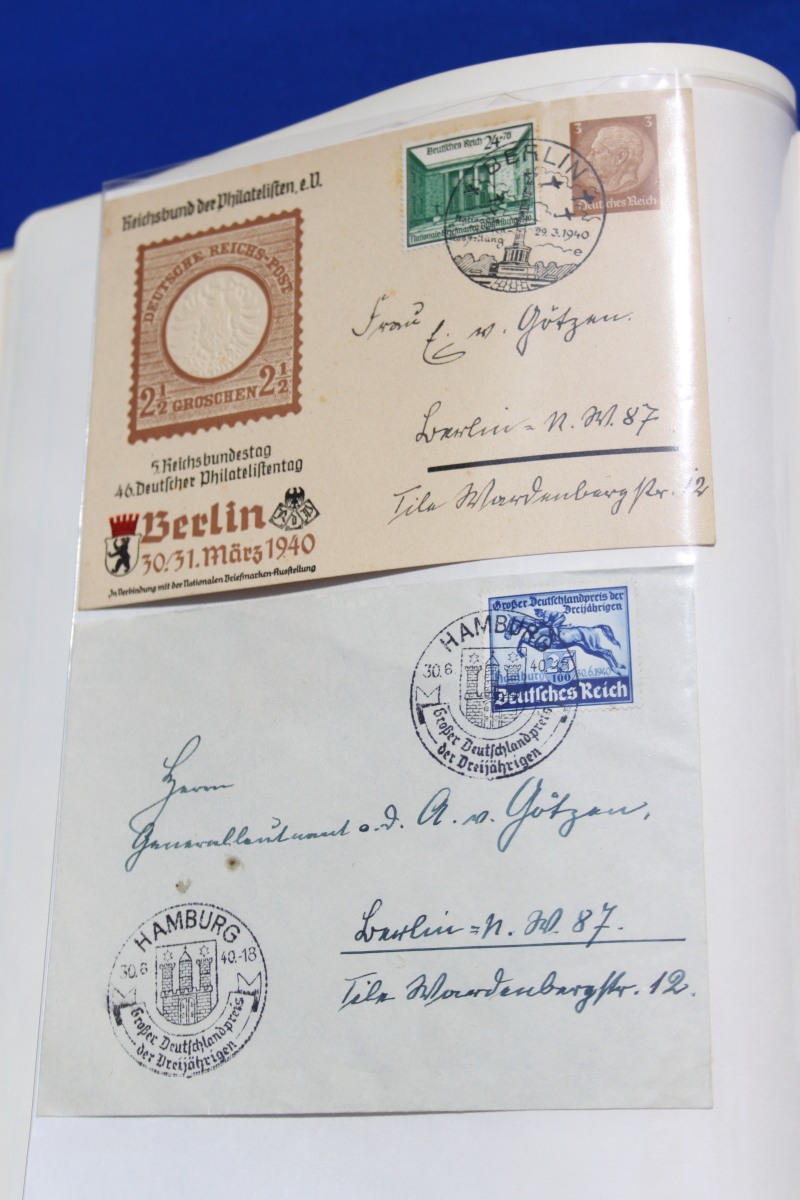 Reichsbund der Philatelisten, e.V.
DEUTSCHE REICHS-POST
2½ GROSCHEN 2½
5. Reichsbundestag
46. Deutscher Philatelistentag
Berlin
30./31. März 1940
In Verbindung mit der Nationalen Briefmarken-Ausstellung
Deutsches Reich 24+76
Nationale Briefmarken-Ausstellung 1940
BERLIN
29.3.1940
e
3 3
Deutsches Reich
Frau E. v. Götzen.
Berlin=N.W.87
Tile Wardenbergstr. 12
Großer Deutschlandpreis der
Dreijährigen
100
Hamburg 30.6.1940
Deutsches Reich
HAMBURG
30.6 40.-18
Großer Deutschlandpreis
der Dreijährigen
Herrn
Generalleutnant a.d. A. v. Götzen,
Berlin=N.W.87.
Tile Wardenbergstr. 12.
HAMBURG
30.6 40.-18
Großer Deutschlandpreis
der Dreijährigen